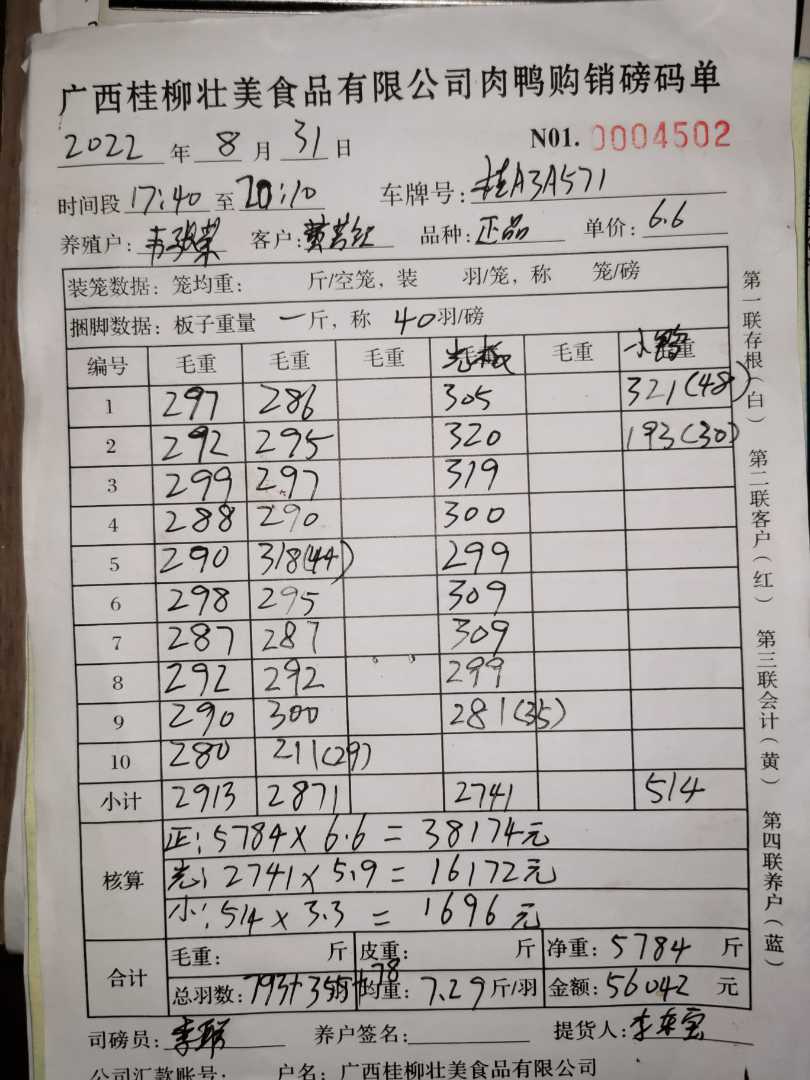 广西桂柳壮美食品有限公司肉鸭购销磅码单
2022 年 8 月 31 日 N01. 0004502
时间段 17:40 至 20:10 车牌号: 桂A3A571
养殖户: 客户: 品种: 正品 单价: 6.6
装笼数据: 笼均重: 斤/空笼, 装 羽/笼, 称 笼/磅
捆脚数据: 板子重量 一斤, 称 40羽/磅
编号 毛重 毛重 毛重 毛重 小鸭重
1 297 286 305 321(48)
2 292 295 320 193(30)
3 299 297 319
4 288 290 300
5 290 318(44) 299
6 298 295 309
7 287 287 309
8 292 292 299
9 290 300 281(35)
10 280 211(29)
小计 2913 2871 2741 514
核算 正: 5784×6.6=38174元
光: 2741×5.9=16172元
小: 514×3.3=1696元
合计 毛重: 斤 皮重: 斤 净重: 5784 斤
总羽数: 793+355+78 均重: 7.29斤/羽 金额: 56042 元
司磅员: 养户签名: 提货人:
公司汇款账号: 户名: 广西桂柳壮美食品有限公司
第一联存根(白) 第二联客户(红) 第三联会计(黄) 第四联养户(蓝)